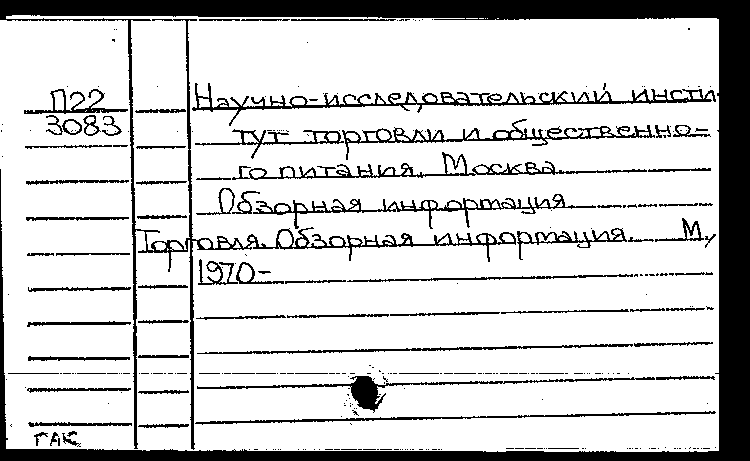 П22
3083
Научно-исследовательский инсти
тут торговли и общественно=
го питания. Москва.
Обзорная информация.
Торговля. Обзорная информация. М.,
1970-
ГАК